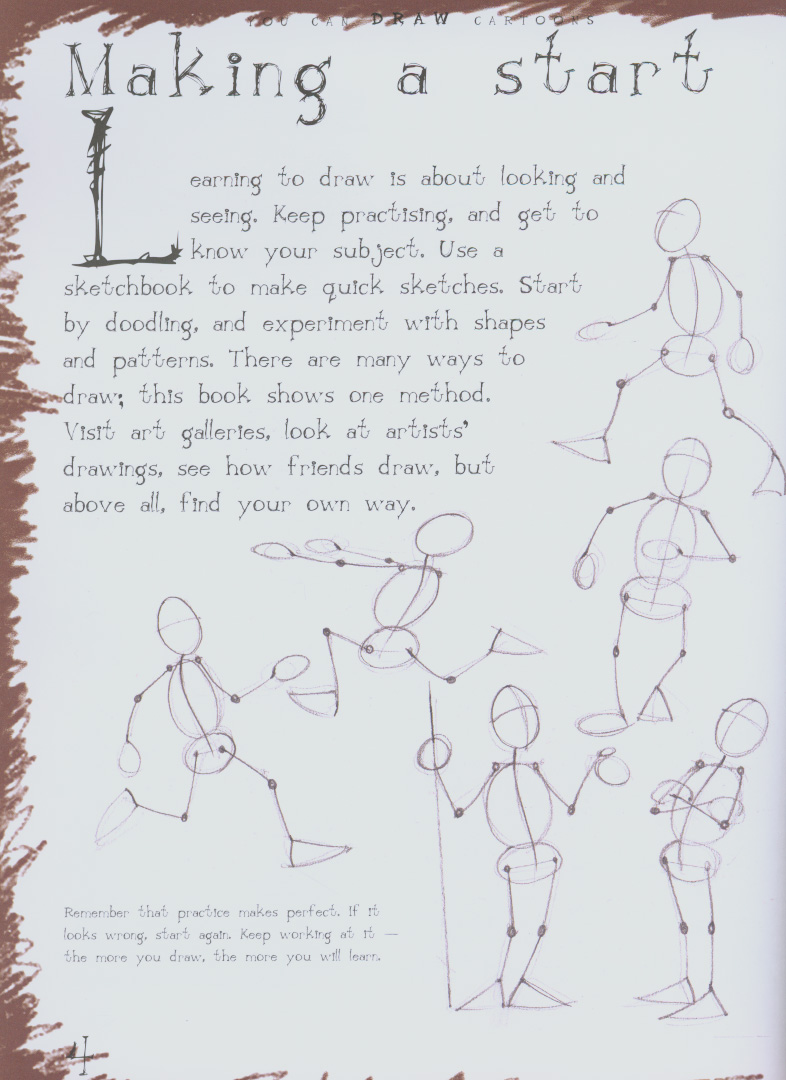 YOU CAN DRAW CARTOONS
Making a start
Learning to draw is about looking and
seeing. Keep practising, and get to
know your subject. Use a
sketchbook to make quick sketches. Start
by doodling, and experiment with shapes
and patterns. There are many ways to
draw; this book shows one method.
Visit art galleries, look at artists'
drawings, see how friends draw, but
above all, find your own way.
Remember that practice makes perfect. If it
looks wrong, start again. Keep working at it –
the more you draw, the more you will learn.
4